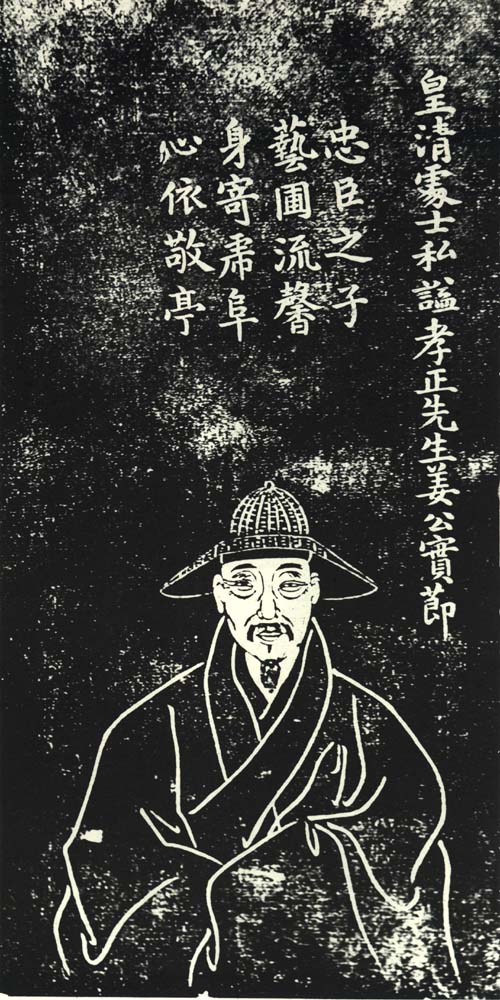 皇清處士私謚孝正先生姜公實節
忠臣之子
藝圃流馨
身寄虎阜
心依敬亭